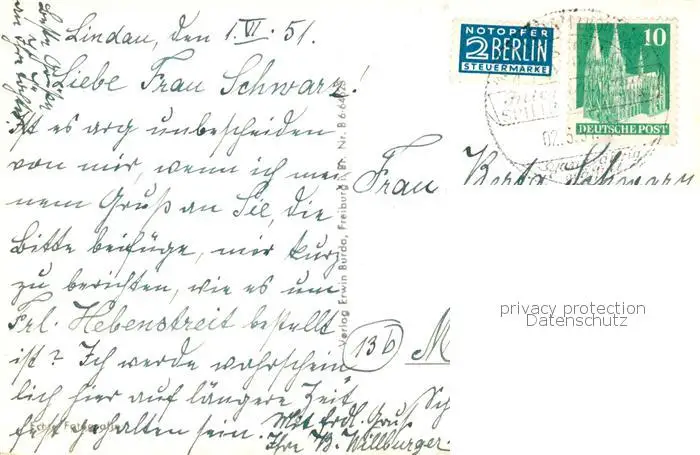 Lindau, den 1. VI. 51.
Liebe Frau Schwarz!
ist es arg unbescheiden
von mir, wenn ich mei
nem Gruß an Sie, die
Bitte beifüge, mir kurz
zu berichten, wie es um
Frl. Hebenstreit bestellt
ist? Ich werde wahrschein
lich hier auf längere Zeit
festgehalten sein.
Mit frdl. Gruß
Ihre B. Willburger.
Echte Fotografie
Verlag Erwin Burda, Freiburg i. Br. Nr. B 6-64
NOTOPFER
2 BERLIN
STEUERMARKE
10
DEUTSCHE POST
02.6.51
Frau Berta Schwarz
13b M
Sch
privacy protection
Datenschutz